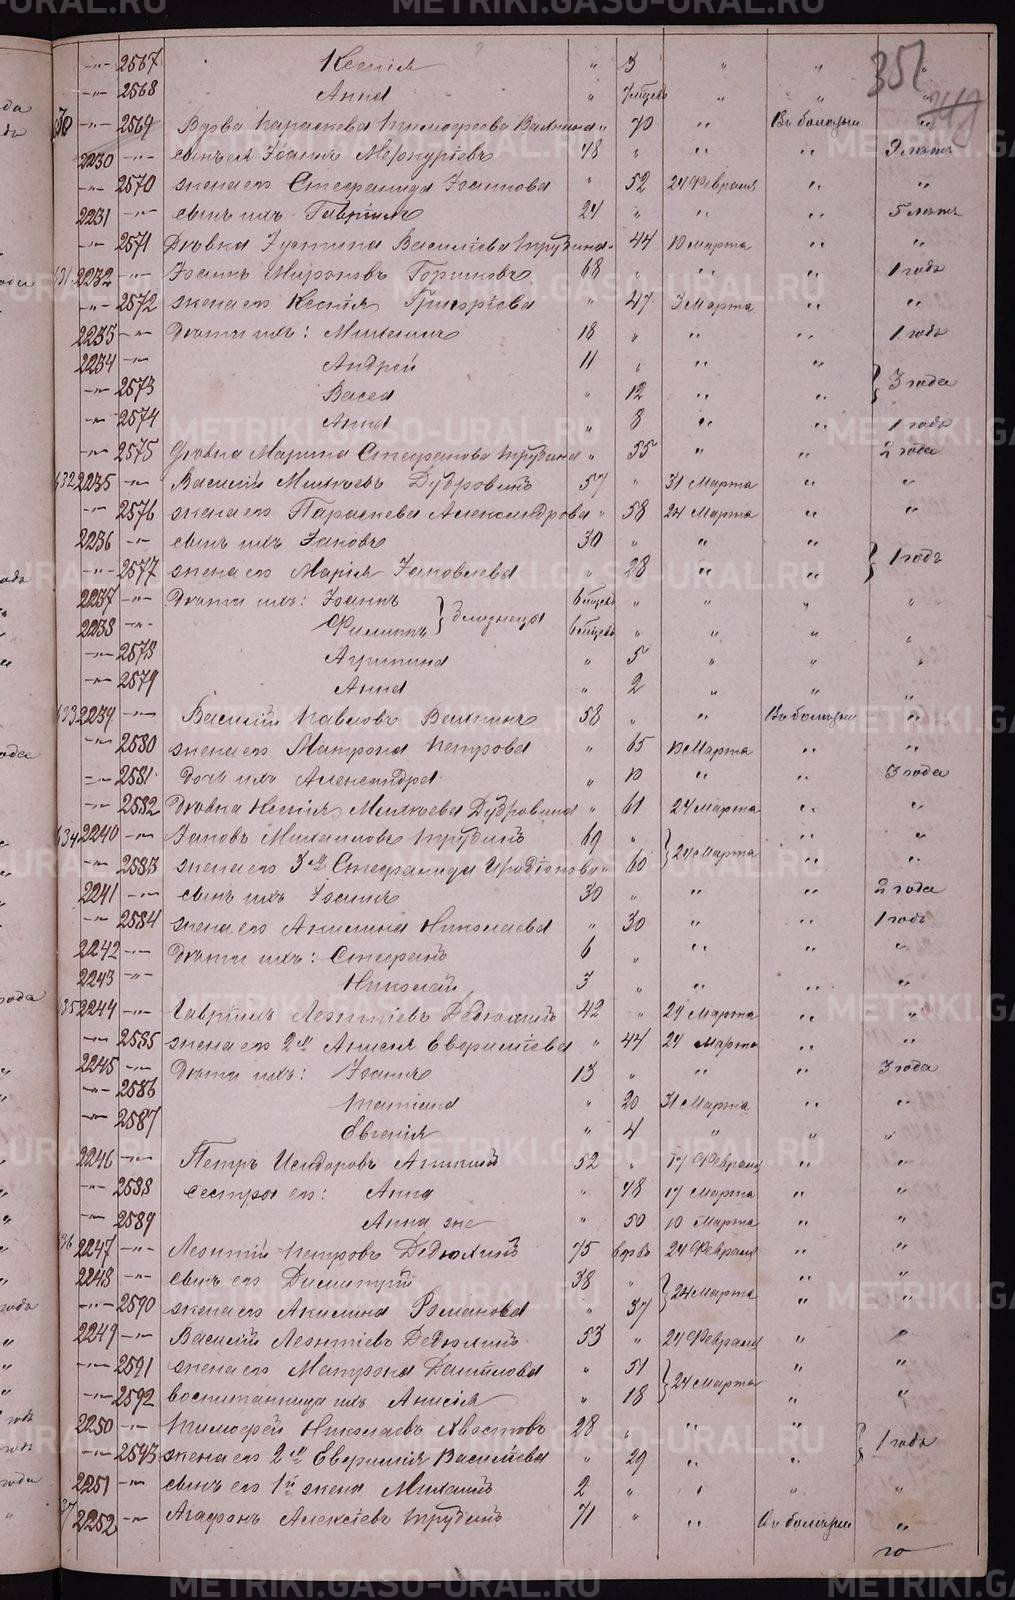 METRIKI.GASO-URAL.RU
351
-"- 2567 Ксенія " 3 " " "
-"- 2568 Анна " 7 мѣсяц " " "
-"- 2569 Вдова Параскева Тимофеева " 70 " Въ болѣзни "
2230 -"- сынъ ея Іоаннъ Меркурьевъ 48 " " " 9 лѣтъ
-"- 2570 жена его Стефанида Іоаннова " 52 24 Февраля " "
2231 -"- сынъ ихъ Гавріилъ 24 " " " 5 лѣтъ
-"- 2571 Дѣвка Іустина Васильева Трубина " 44 10 Марта " "
631 2232 -"- Іоаннъ Мироновъ 68 " " " 1 годъ
-"- 2572 жена его Ксенія Григорьева " 47 3 Марта " "
2233 -"- Дѣти ихъ: Михаилъ 18 " " " 1 годъ
2234 -"- Андрей 11 " " "
-"- 2573 Васса " 12 " " } 3 года
-"- 2574 Анна " 8 " " 1 годъ
-"- 2575 Дѣвка Марина Стефанова Трубина " 55 " " 2 года
632 2235 -"- Василій Михѣевъ Дубровинъ 57 " 31 Марта " "
-"- 2576 жена его Параскева Александрова " 58 24 Марта " "
2236 -"- сынъ ихъ Іаковъ 30 " " "
-"- 2577 жена его Марія Іаковлева " 28 " " } 1 годъ
2237 -"- Дѣти ихъ: Іоаннъ 6 мѣсяц " " " "
2238 -"- Филиппъ } близнецы 6 мѣсяц " " " "
-"- 2578 Агрипина " 5 " " "
-"- 2579 Анна " 2 " " "
633 2239 -"- Василій Павловъ 58 " " Въ болѣзни "
-"- 2580 жена его Матрона Петрова " 65 10 Марта " "
-"- 2581 дочь ихъ Александра " 10 " " 3 года
-"- 2582 Дѣвка Ксенія Михѣева Дубровина " 61 24 Марта " "
634 2240 -"- Іаковъ Михаиловъ Трубинъ 69 " " "
-"- 2583 жена его 3я Стефанида Иродіонова " 60 } 24 Марта " "
2241 -"- сынъ ихъ Іоаннъ 30 " " " 2 года
-"- 2584 жена его Акилина Николаева " 30 " " 1 годъ
2242 -"- Дѣти ихъ: Стефанъ 6 " " " "
2243 -"- Николай 3 " " " "
635 2244 -"- Гавріилъ Леонтіевъ Дедюхинъ 42 " 24 Марта " "
-"- 2585 жена его 2я Анисія " 44 24 Марта " "
2245 -"- Дѣти ихъ: Іоаннъ 13 " " " 3 года
-"- 2586 Татіана " 20 31 Марта " "
-"- 2587 Евгенія " 4 " " "
2246 -"- Петръ Исидоровъ 52 " 17 Февраля " "
-"- 2588 сестры его: Анна " 48 17 Марта " "
-"- 2589 Анна же " 50 10 Марта " "
636 2247 -"- Леонтій Петровъ Дедюхинъ 75 вдовъ 24 Февраля " "
2248 -"- сынъ его Димитрій 38 " " "
-"- 2590 жена его Акилина Романова " 37 } 24 Марта " "
2249 -"- Василій Леонтіевъ Дедюхинъ 53 " 24 Февраля " "
-"- 2591 жена его Матрона Даніилова " 51 " "
-"- 2592 воспитанница ихъ Анисія " 18 } 24 Марта " "
2250 -"- Тимофей Николаевъ Хвостовъ 28 " " "
-"- 2593 жена его 2я Васильева " 29 " " } 1 годъ
2251 -"- сынъ его 1й жены Михаилъ 2 " " " "
637 2252 -"- Агафонъ Алексіевъ Трубинъ 71 " " Въ болѣзни "